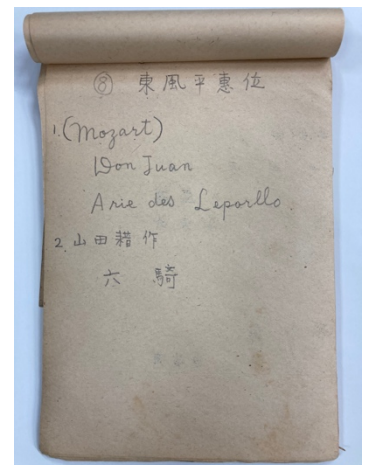 ⑧ 東風平惠位
1. (Mozart)
Don Juan
Arie des Leporllo.
2. 山田耤作
六 騎